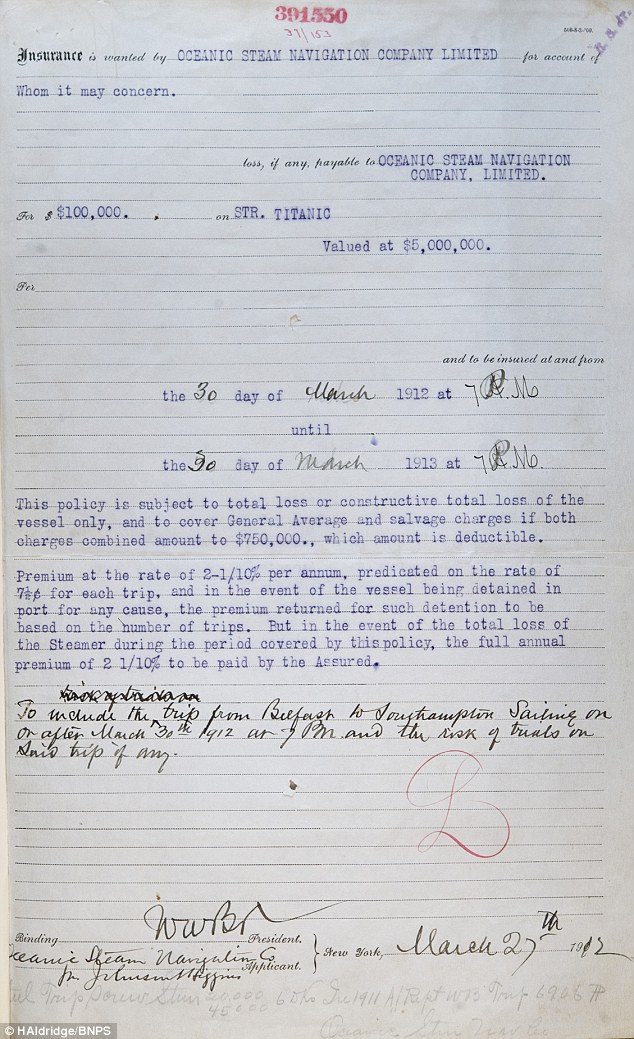 391550
37/153
Insurance is wanted by OCEANIC STEAM NAVIGATION COMPANY LIMITED for account of
Whom it may concern.
loss, if any, payable to OCEANIC STEAM NAVIGATION
COMPANY, LIMITED.
For $ $100,000. on STR. TITANIC
Valued at $5,000,000.
Per
and to be insured at and from
the 30 day of March 1912 at 7 P.M
until
the 30 day of March 1913 at 7 P.M.
This policy is subject to total loss or constructive total loss of the
vessel only, and to cover General Average and salvage charges if both
charges combined amount to $750,000., which amount is deductible.
Premium at the rate of 2-1/10% per annum, predicated on the rate of
7½¢ for each trip, and in the event of the vessel being detained in
port for any cause, the premium returned for such detention to be
based on the number of trips. But in the event of the total loss of
the Steamer during the period covered by this policy, the full annual
premium of 2 1/10% to be paid by the Assured.
To include the trip from Belfast to Southampton Sailing on
or after March 30th 1912 at 7 PM and the risk of trials on
said trip if any.
Binding President.
Oceanic Steam Navigation Co
Applicant.
} New York, March 27th 1912
pr Johnson & Higgins
© HAldridge/BNPS